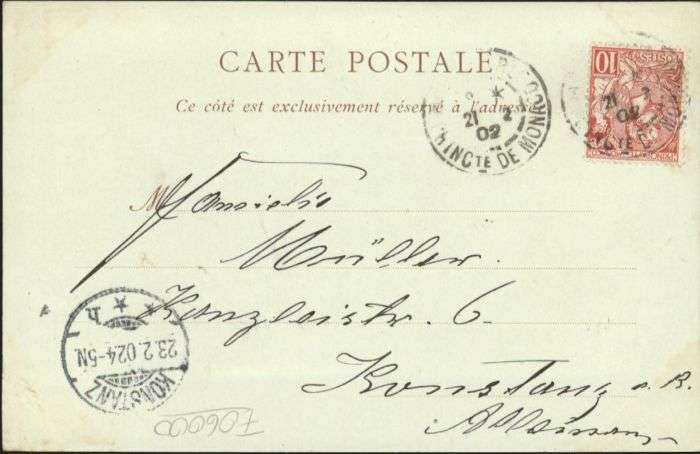 CARTE POSTALE
Ce côté est exclusivement réservé à l'adresse
POSTES
10
21 2
02
PINCTÉ DE MONACO
21 2
02
CTÉ DE MON
M
Familie
Müller.
Kanzleistr. 6.
Konstanz a. B.
KONSTANZ
23.2.02.4-5N.
* h